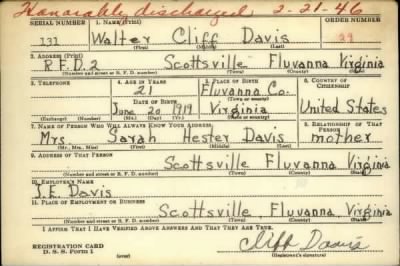 Honorably discharged 2-21-46
SERIAL NUMBER 1. NAME (Print) ORDER NUMBER
131 Walter Cliff Davis
(First) (Middle) (Last)
2. ADDRESS (Print)
R.F.D.2 Scottsville Fluvanna Virginia
(Number and street or R. F. D. number) (Town) (County) (State)
3. TELEPHONE 4. AGE IN YEARS 5. PLACE OF BIRTH 6. COUNTRY OF CITIZENSHIP
21 Fluvanna Co.
DATE OF BIRTH (Town or county)
June 20 1919 Virginia United States
(Exchange) (Number) (Mo.) (Day) (Yr.) (State or country)
7. NAME OF PERSON WHO WILL ALWAYS KNOW YOUR ADDRESS 8. RELATIONSHIP OF THAT PERSON
Mrs Sarah Hester Davis mother
(Mr., Mrs., Miss) (First) (Middle) (Last)
9. ADDRESS OF THAT PERSON
Scottsville Fluvanna Virginia
(Number and street or R. F. D. number) (Town) (County) (State)
10. EMPLOYER'S NAME
J.E. Davis
11. PLACE OF EMPLOYMENT OR BUSINESS
Scottsville, Fluvanna, Virginia
(Number and street or R. F. D. number) (Town) (County) (State)
I AFFIRM THAT I HAVE VERIFIED ABOVE ANSWERS AND THAT THEY ARE TRUE.
Cliff Davis
REGISTRATION CARD
D. S. S. Form 1 (over) (Registrant's signature)